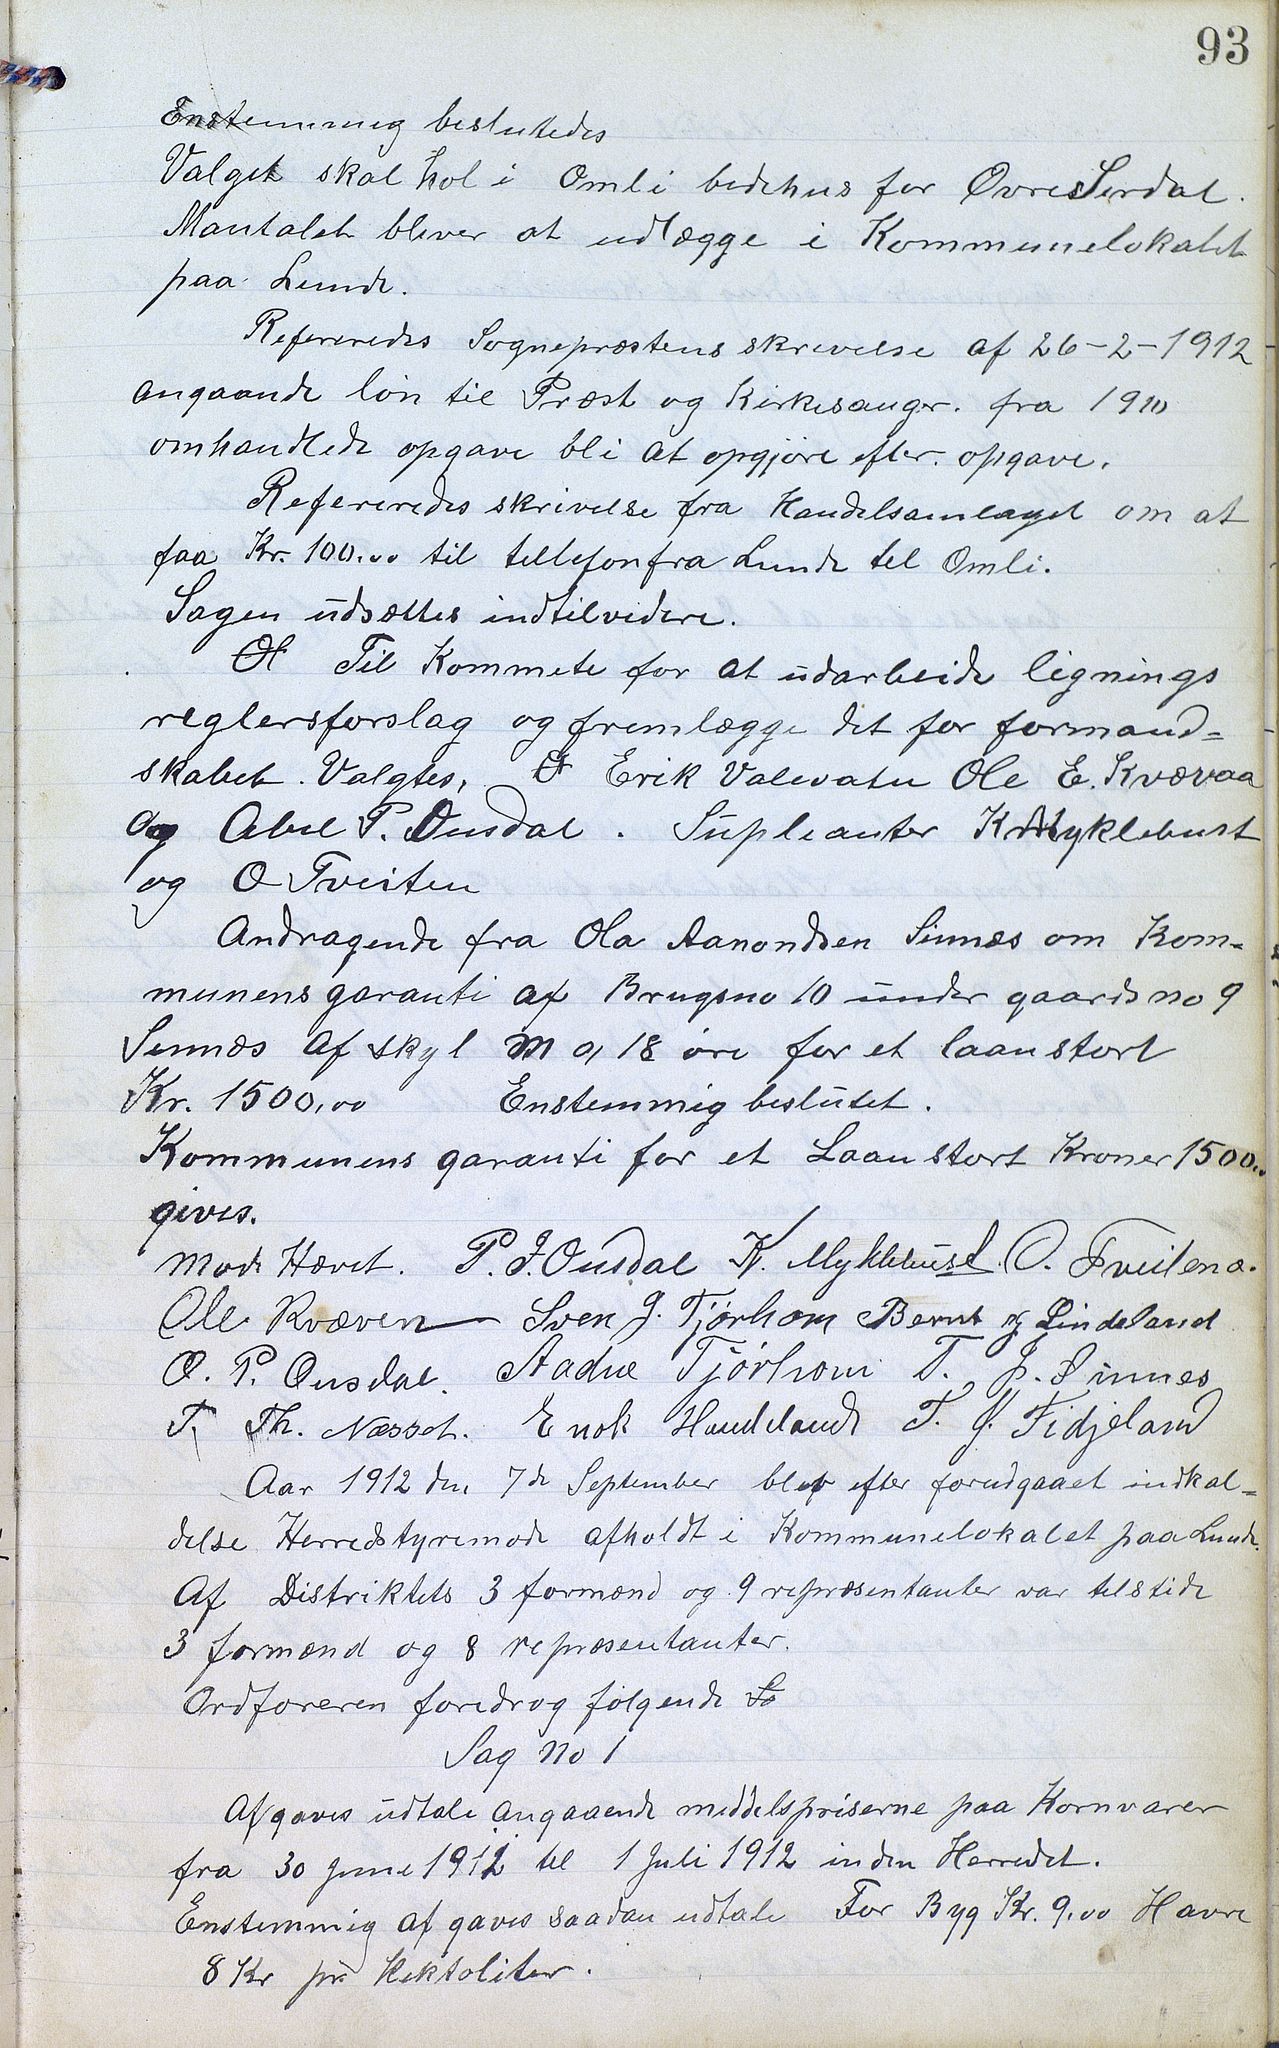 93
Enstemmig beslutedes
Valget skal hol i Omli bedehus for Øvre Sirdal.
Mantalet bliver at udlægge i Kommunelokalet
paa Lunde.
Refereredes Sogneprestens skrivelse af 26-2-1912
angaaende løn til Præst og Kirkesanger. fra 1910
omhandlede opgave bli at opgjøre efter. opgave.
Refereredes skrivelse fra Handelsamlaget om at
faa Kr. 100.00 til tellefon fra Lunde tel Omli.
Sagen udsættes indtilvidere.
Til Kommete for at udarbeide lignings
reglersforslag og fremlægge det for formand=
skabet. Valgtes, Erik Valevatn Ole E. Kvævaa
og Abel P. Ousdal. Supleanter K. Myklebust
og O Tveiten
Andragende fra Ola Aanondsen Sinnæs om Kom-
munens garanti af Brugsno 10 under gaards no 9
Sinnæs af skyl M 0,18 øre for et laan stort
Kr. 1500,00 Enstemmig beslutet.
Kommunens garanti for et Laan stort Kroner 1500,00
gives.
Møde Hævet. P. J. Ousdal K. Myklebust. O. Tveitenæ.
Ole Kvæven Sven J. Tjørhom Bernt Lindeland
O. P. Ousdal. Aadne Tjørhom T. J. Sinnes
T. Th. Næsset. Enok Haudeland T. J. Fidjeland
Aar 1912 den 7de September blev efter forudgaaet indkal=
delse Herredstyremøde afholdt i Kommunelokalet paa Lunde.
Af Distriktets 3 formænd og 9 repræsentanter var telstede
3 formænd og 8 repræsentanter.
Ordføreren foredrog følgende
Sag No 1
Afgaves udtale angaaende middelspriserne paa Kornvarer
fra 30 June 1912 tel 1 Juli 1912 inden Herredet.
Enstemmig af gaves saadan udtale For Byg Kr. 9.00 Havre
8 Kr pr Hektoliter.